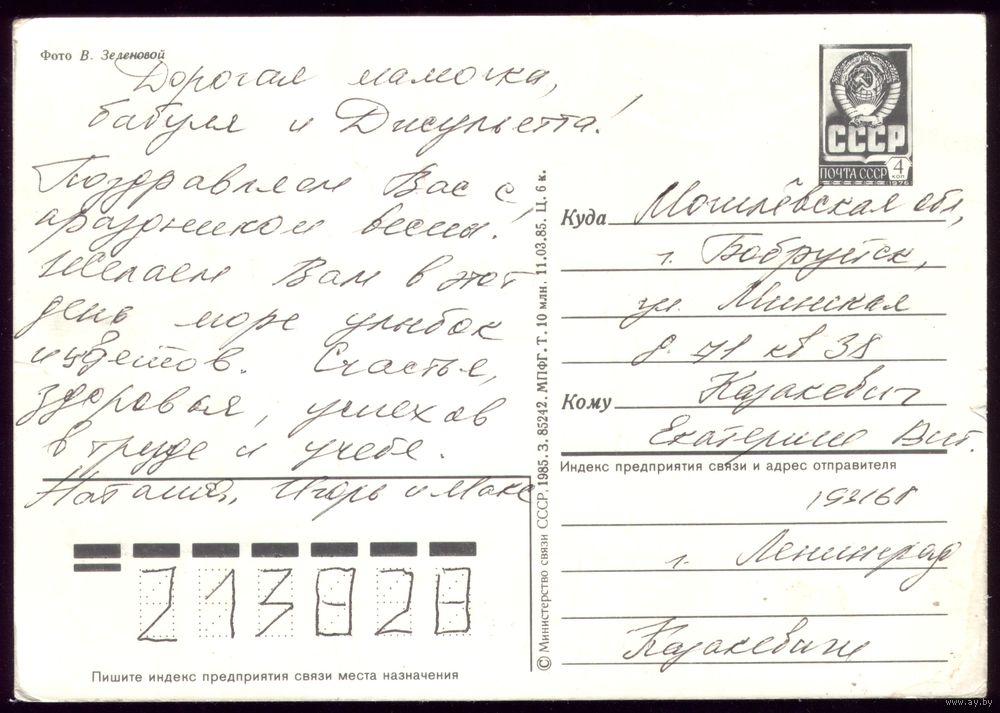 Фото В. Зеленовой
Дорогая мамочка,
бабуля и Джульетта!
Поздравляем Вас с
праздником весны!
Желаем Вам в этот
день море улыбок
и цветов. Счастья,
здоровья, успехов
в труде и учебе.
Наташа, Игорь и Макс
213828
Пишите индекс предприятия связи места назначения
© Министерство связи СССР, 1985. З. 85242. МПФГ. Т. 10 млн. 11.03.85. Ц. 6 к.
СССР
ПОЧТА СССР 4 коп
1976
Куда Могилёвская обл,
г. Бобруйск,
ул. Минская
д. 71 кв 38
Кому Казакевич
Екатерине Вит.
Индекс предприятия связи и адрес отправителя
193168
г. Ленинград
Казакевичи
www.ay.by